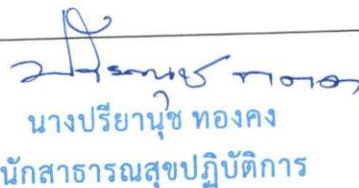 นางปรียานุช ทองคง
นักสาธารณสุขปฏิบัติการ